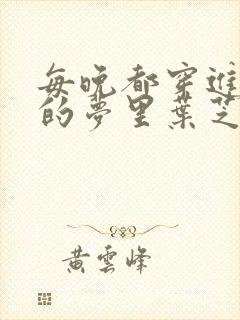 每晚都穿進
的夢里葉芝
黃雲峰